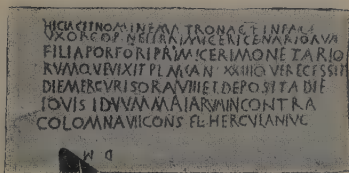 HIC IACET NOMINE MATRONA C F IN FACE
VXOR CORNELI PRIMICERI CENARIORVM
FILIA PORFORI PRIMICERI MONETARIO
RVMQVE VIXIT PL M ANN XXIII QVE RECESSIT
DIE MERCVRIS ORA VIII ET DEPOSITA DIE
IOVIS IDVVM MAIARVM IN CONTRA
COLOMNA VII CONS FL HERCVLANI VC
D M